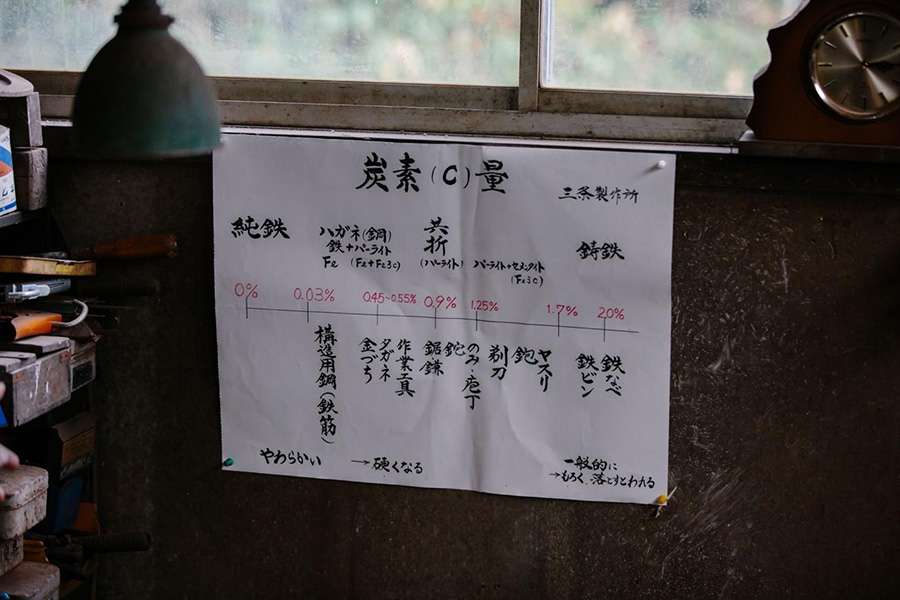 炭素(C)量
三条製作所
純鉄
ハガネ(鋼)
鉄+パーライト
Fe (Fe+Fe3C)
共折
(パーライト)
パーライト+セメンタイト
(Fe3C)
鋳鉄
0%
0.03%
0.45~0.55%
0.9%
1.25%
1.7%
2.0%
構造用鋼(鉄筋)
金づち
タガネ
作業工具
鋸・鎌
鉈
のみ・庖丁
剃刀
鉋
ヤスリ
鉄ビン
鉄なべ
やわらかい
→硬くなる
一般的に
→もろく、落とすとわれる